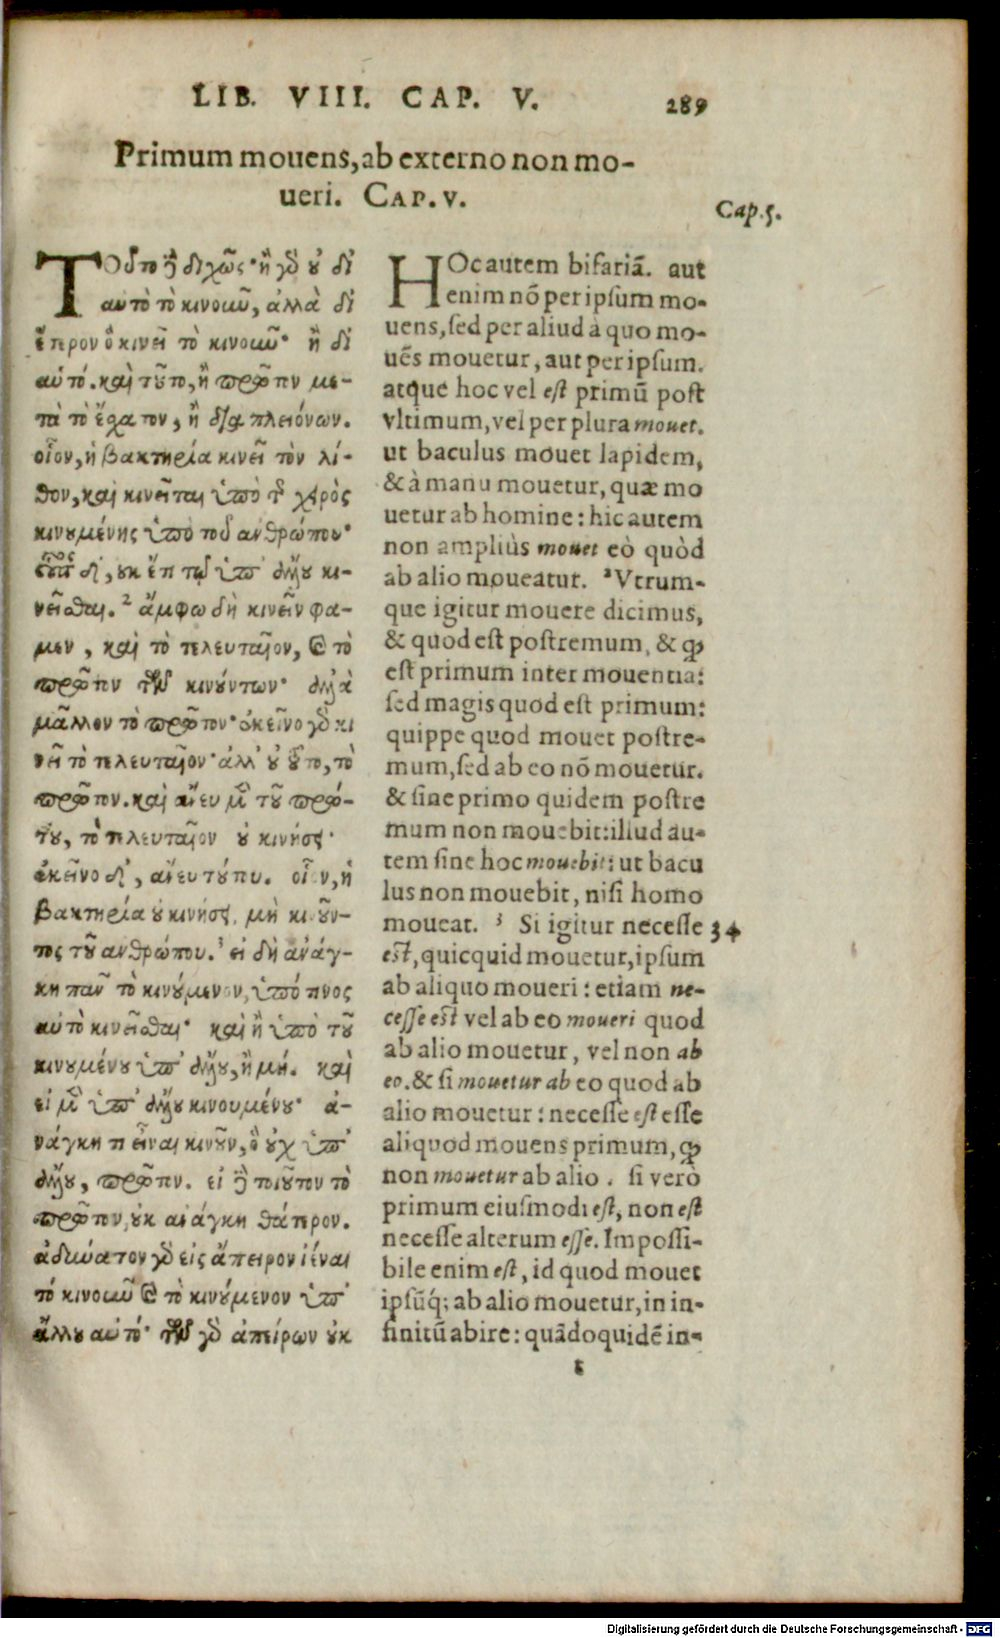 LIB. VIII. CAP. V. 289
Primum mouens, ab externo non mo-
ueri. CAP. V.
Cap. 5.
ΤΟῦτο δὲ διχῶς· ἢ γὰρ οὐ δι'
αὐτὸ τὸ κινοῦν, ἀλλὰ δι'
ἕτερον ὃ κινεῖ τὸ κινοῦν· ἢ δι'
αὑτό. καὶ τοῦτο, ἢ πρῶτον με-
τὰ τὸ ἔσχατον, ἢ διὰ πλειόνων.
οἷον, ἡ βακτηρία κινεῖ τὸν λί-
θον, καὶ κινεῖται ὑπὸ τῆς χειρὸς
κινουμένης ὑπὸ τοῦ ἀνθρώπου·
οὗτος δ', οὐκ ἔτι τῷ ὑπ' ἄλλου κι-
νεῖσθαι. 2 ἄμφω δὴ κινεῖν φα-
μεν, καὶ τὸ τελευταῖον, καὶ τὸ
πρῶτον τῶν κινούντων· ἀλλὰ
μᾶλλον τὸ πρῶτον· ἐκεῖνο γὰρ κι
νεῖ τὸ τελευταῖον· ἀλλ' οὐ τοῦτο, τὸ
πρῶτον. καὶ ἄνευ μὲν τοῦ πρώ-
του, τὸ τελευταῖον οὐ κινήσει·
ἐκεῖνο δ', ἄνευ τούτου. οἷον, ἡ
βακτηρία οὐ κινήσει, μὴ κινοῦν-
τος τοῦ ἀνθρώπου. 3 εἰ δὴ ἀνάγ-
κη πᾶν τὸ κινούμενον, ὑπό τινος
αὐτὸ κινεῖσθαι· καὶ ἢ ὑπὸ τοῦ
κινουμένου ὑπ' ἄλλου, ἢ μή. καὶ
εἰ μὲν ὑπ' ἄλλου κινουμένου· ἀ-
νάγκη τι εἶναι κινοῦν, ὃ οὐχ ὑπ'
ἄλλου, πρῶτον. εἰ δὲ τοιοῦτον τὸ
πρῶτον, οὐκ ἀνάγκη θάτερον.
ἀδύνατον γὰρ εἰς ἄπειρον ἰέναι
τὸ κινοῦν καὶ τὸ κινούμενον ὑπ'
ἄλλου αὐτό· τῶν γὰρ ἀπείρων οὐκ
HOc autem bifariã. aut
enim nõ per ipsum mo-
uens, sed per aliud à quo mo-
uẽs mouetur, aut per ipsum.
atque hoc vel est primũ post
vltimum, vel per plura mouet.
ut baculus mouet lapidem,
& à manu mouetur, quæ mo
uetur ab homine: hic autem
non ampliùs mouet eò quòd
ab alio moueatur. 2 Vtrum-
que igitur mouere dicimus,
& quod est postremum, & qđ
est primum inter mouentia:
sed magis quod est primum:
quippe quod mouet postre-
mum, sed ab eo nõ mouetur.
& sine primo quidem postre
mum non mouebit: illud au-
tem sine hoc mouebit: ut bacu
lus non mouebit, nisi homo
moueat. 3 Si igitur necesse 34
est, quicquid mouetur, ipsum
ab aliquo moueri: etiam ne-
cesse est vel ab eo moueri quod
ab alio mouetur, vel non ab
eo. & si mouetur ab eo quod ab
alio mouetur: necesse est esse
aliquod mouens primum, qđ
non mouetur ab alio. si verò
primum eiusmodi est, non est
necesse alterum esse. Impossi-
bile enim est, id quod mouet
ipsũq; ab alio mouetur, in in-
finitũ abire: quãdoquidẽ in-
t
Digitalisierung gefördert durch die Deutsche Forschungsgemeinschaft - DFG